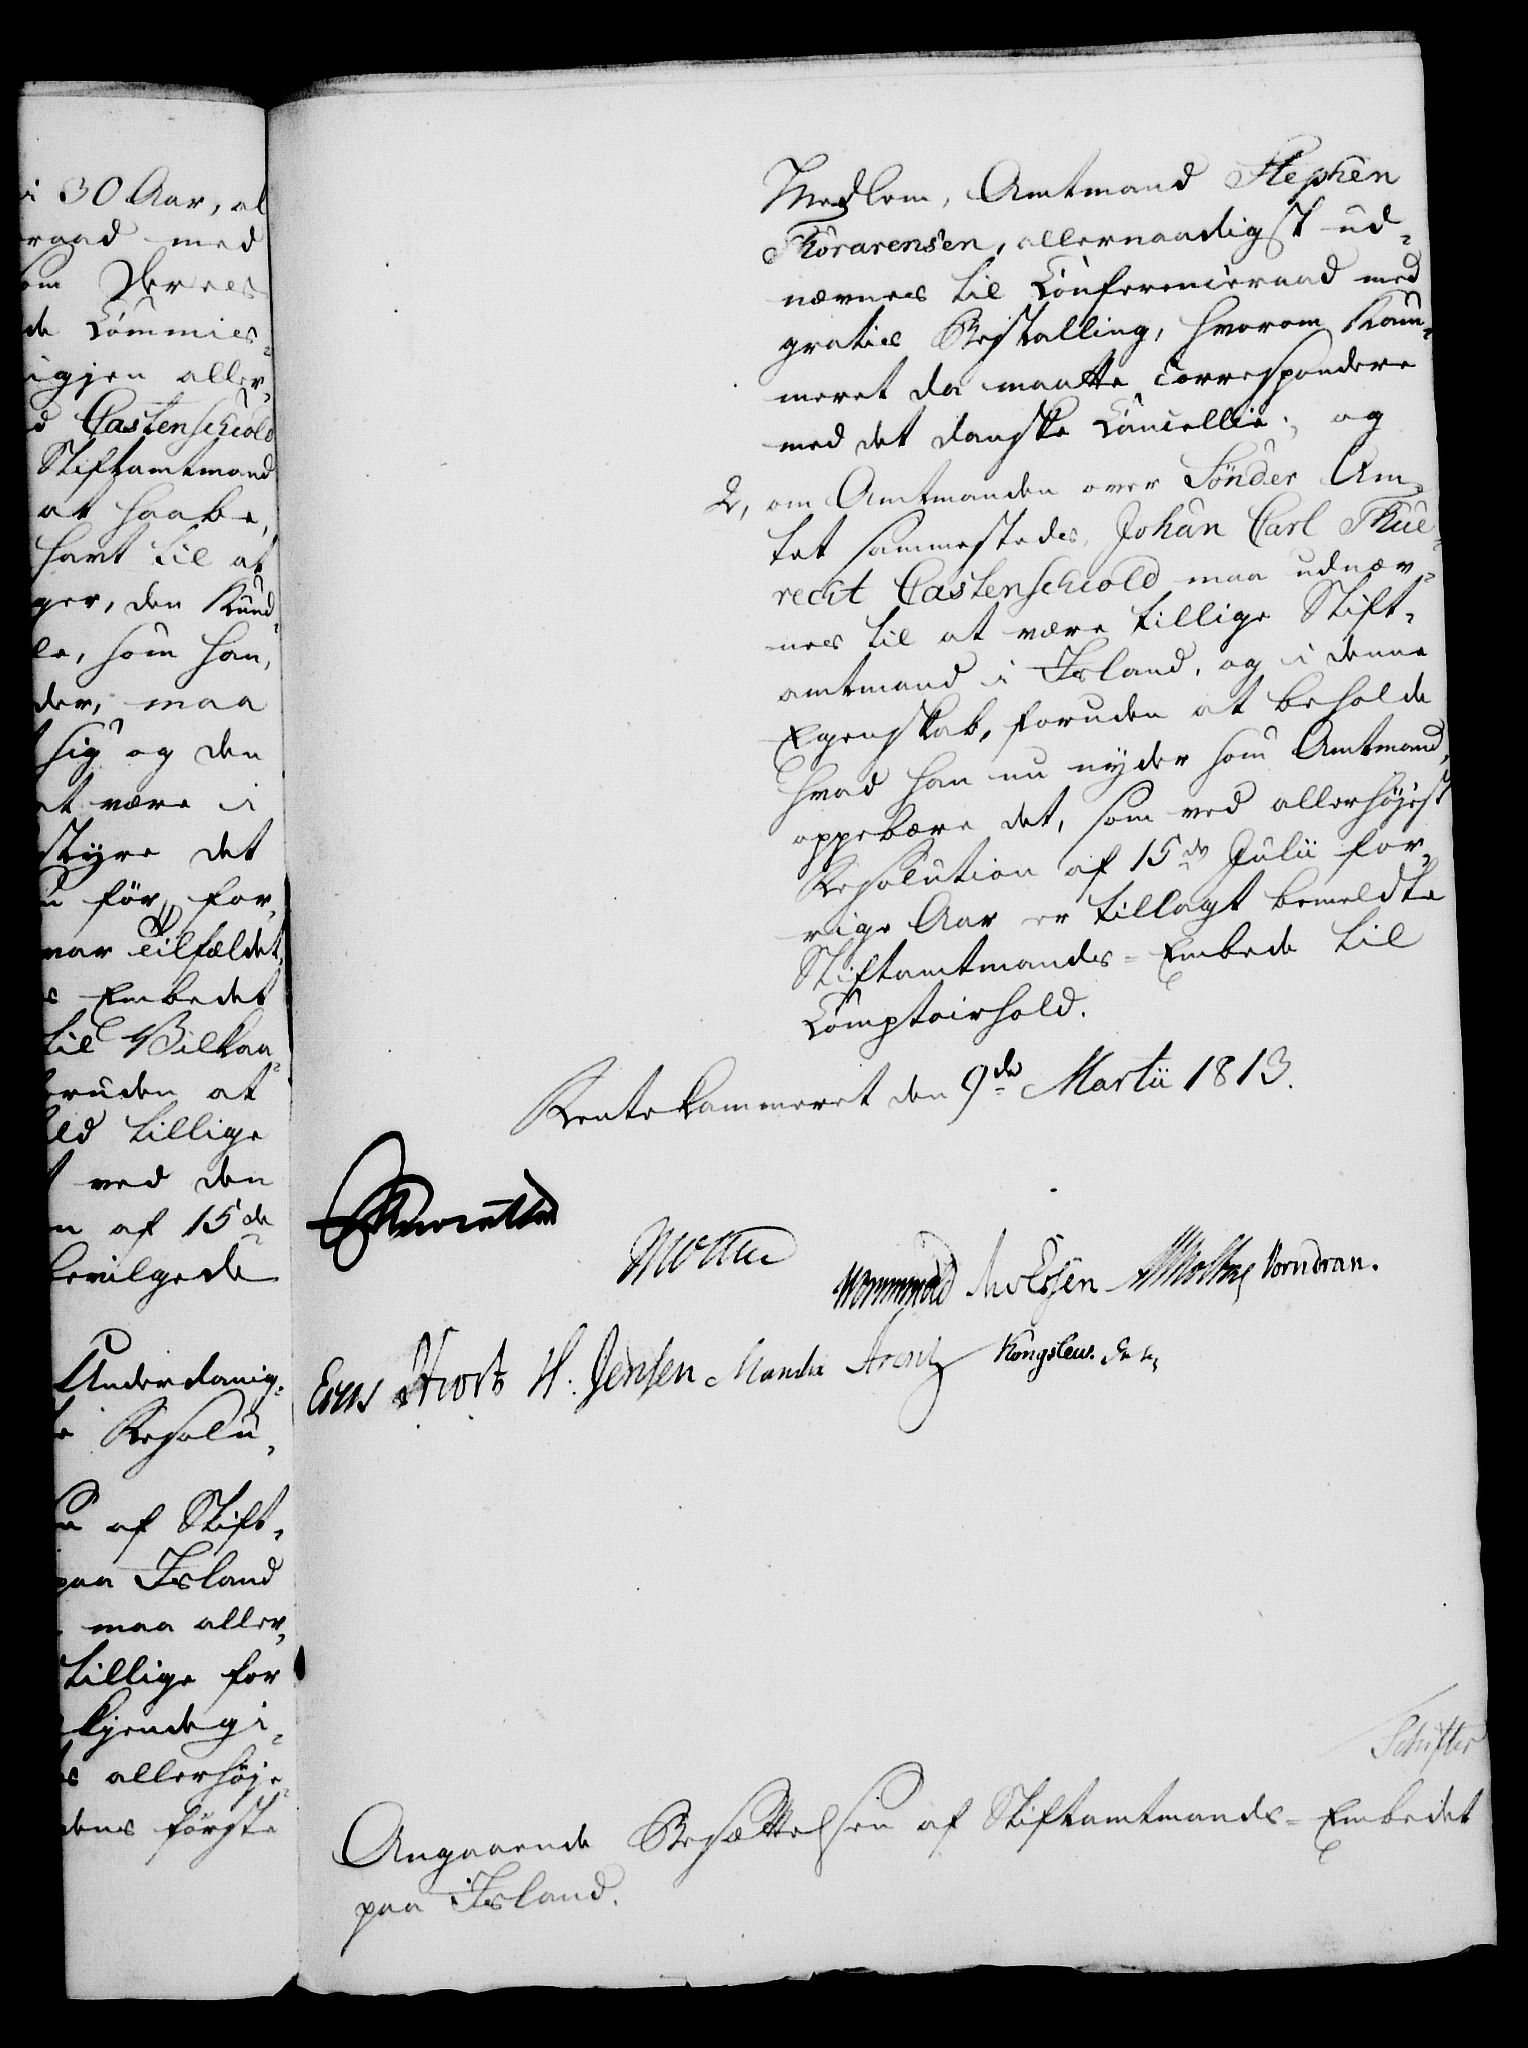 i 30 Aar, al
raad med
om Deres
de Commis-
igjen aller-
d Castenschiold
Stiftamtmand
at haabe,
havt til at
ger, den Kund-
le, som han,
der, maa
sig og den
at være i
styre det
før, for,
nar Tilfældet,
s Embedet
til Vilkaa-
oruden at
ld tillige
ved den
n af 15de
bevilgede
Underdanig-
Resolu-
af Stift-
paa Island
maa aller-
tillige for
kjendegi-
s allerhøje-
dens første
Medlem, Amtmand Stephen
Thorarensen, allernaadigst ud-
nævnes til Conferenceraad med
gratis Bestalling, hvorom Kam-
meret da maatte correspondere
med det danske Cancellie; og
2, om Amtmanden over Sønder Am-
tet sammestedes, Johan Carl Thue-
recht Castenschiold maa udnæv-
nes til at være tillige Stift-
amtmand i Island, og i denne
Egenskab, foruden at beholde
hvad han nu nyder som Amtmand,
oppebære det, som ved allerhøjest
Resolution af 15de Julii for-
rige Aar er tillagt bemeldte
Stiftamtmands-Embede til
Comptoirhold.
Rentekammeret den 9de Martii 1813.
Wormskiold Vorndran.
Hiort H. Jensen Arentz Kongslew.
Schifter
Angaaende Besættelsen af Stiftamtmands-Embedet
paa Island.